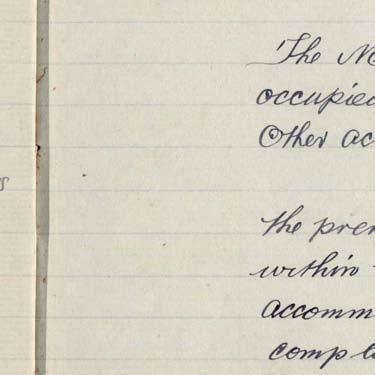 The
occupied
Other ac
the prem
within
accomm
comp